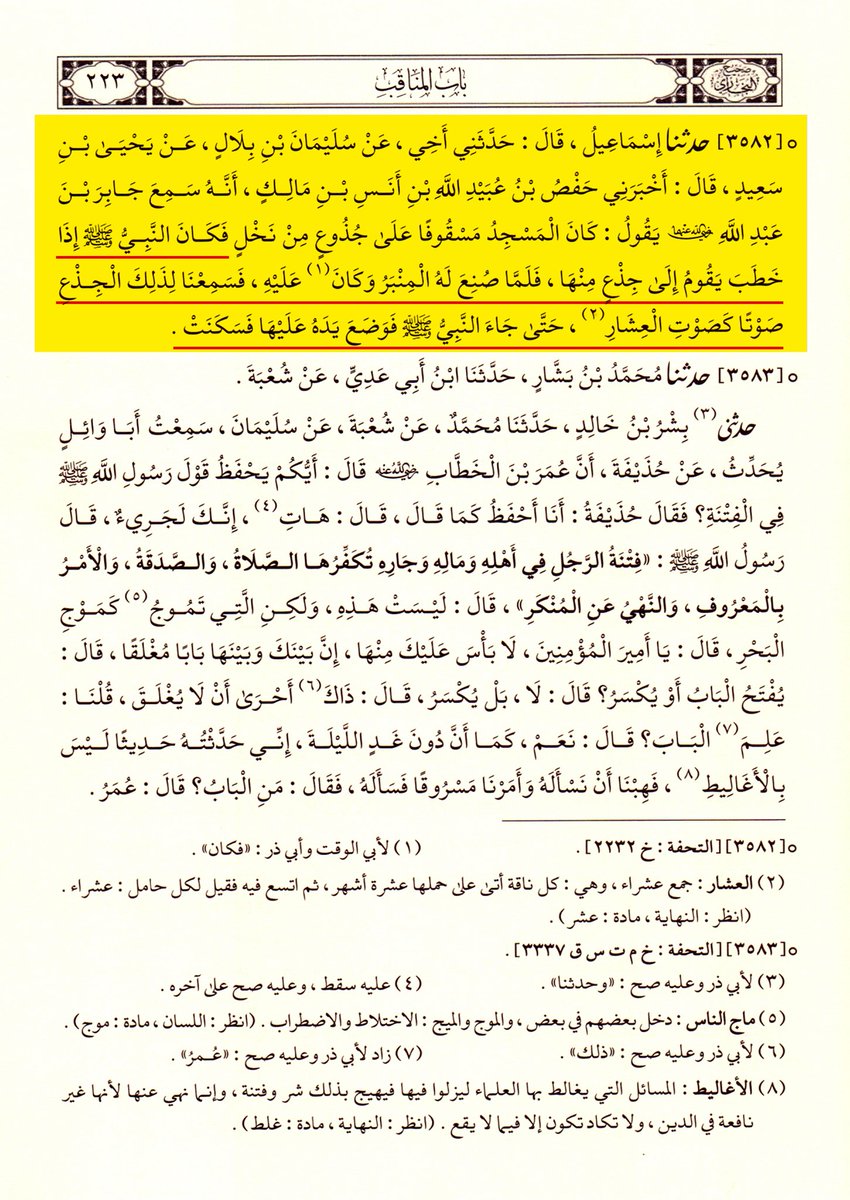 صحيح البخاري
باب المناقب
٢٢٣
○ [٣٥٨٢] حدثنا إِسْمَاعِيلُ ، قَالَ : حَدَّثَنِي أَخِي ، عَنْ سُلَيْمَانَ بْنِ بِلَالٍ ، عَنْ يَحْيَىٰ بْنِ
سَعِيدٍ ، قَالَ : أَخْبَرَنِي حَفْصُ بْنُ عُبَيْدِ اللَّهِ بْنِ أَنَسِ بْنِ مَالِكٍ ، أَنَّهُ سَمِعَ جَابِرَ بْنَ
عَبْدِ اللَّهِ رضي الله عنهما يَقُولُ : كَانَ الْمَسْجِدُ مَسْقُوفًا عَلَىٰ جُذُوعٍ مِنْ نَخْلٍ فَكَانَ النَّبِيُّ ﷺ إِذَا
خَطَبَ يَقُومُ إِلَىٰ جِذْعٍ مِنْهَا ، فَلَمَّا صُنِعَ لَهُ الْمِنْبَرُ وَكَانَ(١) عَلَيْهِ ، فَسَمِعْنَا لِذَلِكَ الْجِذْعِ
صَوْتًا كَصَوْتِ الْعِشَارِ(٢) ، حَتَّىٰ جَاءَ النَّبِيُّ ﷺ فَوَضَعَ يَدَهُ عَلَيْهَا فَسَكَنَتْ .
○ [٣٥٨٣] حدثنا مُحَمَّدُ بْنُ بَشَّارٍ ، حَدَّثَنَا ابْنُ أَبِي عَدِيٍّ ، عَنْ شُعْبَةَ .
حدثني(٣) بِشْرُ بْنُ خَالِدٍ ، حَدَّثَنَا مُحَمَّدٌ ، عَنْ شُعْبَةَ ، عَنْ سُلَيْمَانَ ، سَمِعْتُ أَبَا وَائِلٍ
يُحَدِّثُ ، عَنْ حُذَيْفَةَ ، أَنَّ عُمَرَ بْنَ الْخَطَّابِ رضي الله عنه قَالَ : أَيُّكُمْ يَحْفَظُ قَوْلَ رَسُولِ اللَّهِ ﷺ
فِي الْفِتْنَةِ؟ فَقَالَ حُذَيْفَةُ : أَنَا أَحْفَظُ كَمَا قَالَ ، قَالَ : هَاتِ(٤) ، إِنَّكَ لَجَرِيءٌ ، قَالَ
رَسُولُ اللَّهِ ﷺ : «فِتْنَةُ الرَّجُلِ فِي أَهْلِهِ وَمَالِهِ وَجَارِهِ تُكَفِّرُهَا الصَّلَاةُ ، وَالصَّدَقَةُ ، وَالْأَمْرُ
بِالْمَعْرُوفِ ، وَالنَّهْيُ عَنِ الْمُنْكَرِ» ، قَالَ : لَيْسَتْ هَذِهِ ، وَلَكِنِ الَّتِي تَمُوجُ(٥) كَمَوْجِ
الْبَحْرِ ، قَالَ : يَا أَمِيرَ الْمُؤْمِنِينَ ، لَا بَأْسَ عَلَيْكَ مِنْهَا ، إِنَّ بَيْنَكَ وَبَيْنَهَا بَابًا مُغْلَقًا ، قَالَ :
يُفْتَحُ الْبَابُ أَوْ يُكْسَرُ؟ قَالَ : لَا ، بَلْ يُكْسَرُ ، قَالَ : ذَاكَ(٦) أَحْرَىٰ أَنْ لَا يُغْلَقَ ، قُلْنَا :
عَلِمَ(٧) الْبَابَ؟ قَالَ : نَعَمْ ، كَمَا أَنَّ دُونَ غَدٍ اللَّيْلَةَ ، إِنِّي حَدَّثْتُهُ حَدِيثًا لَيْسَ
بِالْأَغَالِيطِ(٨) ، فَهِبْنَا أَنْ نَسْأَلَهُ وَأَمَرْنَا مَسْرُوقًا فَسَأَلَهُ ، فَقَالَ : مَنِ الْبَابُ؟ قَالَ : عُمَرُ .
○ [٣٥٨٢] [التحفة : خ ٢٢٣٢] . (١) لأبي الوقت وأبي ذر : «فكان» .
(٢) العشار : جمع عشراء ، وهي : كل ناقة أتىٰ علىٰ حملها عشرة أشهر ، ثم اتسع فيه فقيل لكل حامل : عشراء .
(انظر : النهاية ، مادة : عشر) .
○ [٣٥٨٣] [التحفة : خ م ت س ق ٣٣٣٧] .
(٣) لأبي ذر وعليه صح : «وحدثنا» . (٤) عليه سقط ، وعليه صح علىٰ آخره .
(٥) ماج الناس : دخل بعضهم في بعض ، والموج والميج : الاختلاط والاضطراب . (انظر : اللسان ، مادة : موج) .
(٦) لأبي ذر وعليه صح : «ذلك» . (٧) زاد لأبي ذر وعليه صح : «عُمرُ» .
(٨) الأغاليط : المسائل التي يغالط بها العلماء ليزلوا فيها فيهيج بذلك شر وفتنة ، وإنما نهي عنها لأنها غير
نافعة في الدين ، ولا تكاد تكون إلا فيما لا يقع . (انظر : النهاية ، مادة : غلط) .